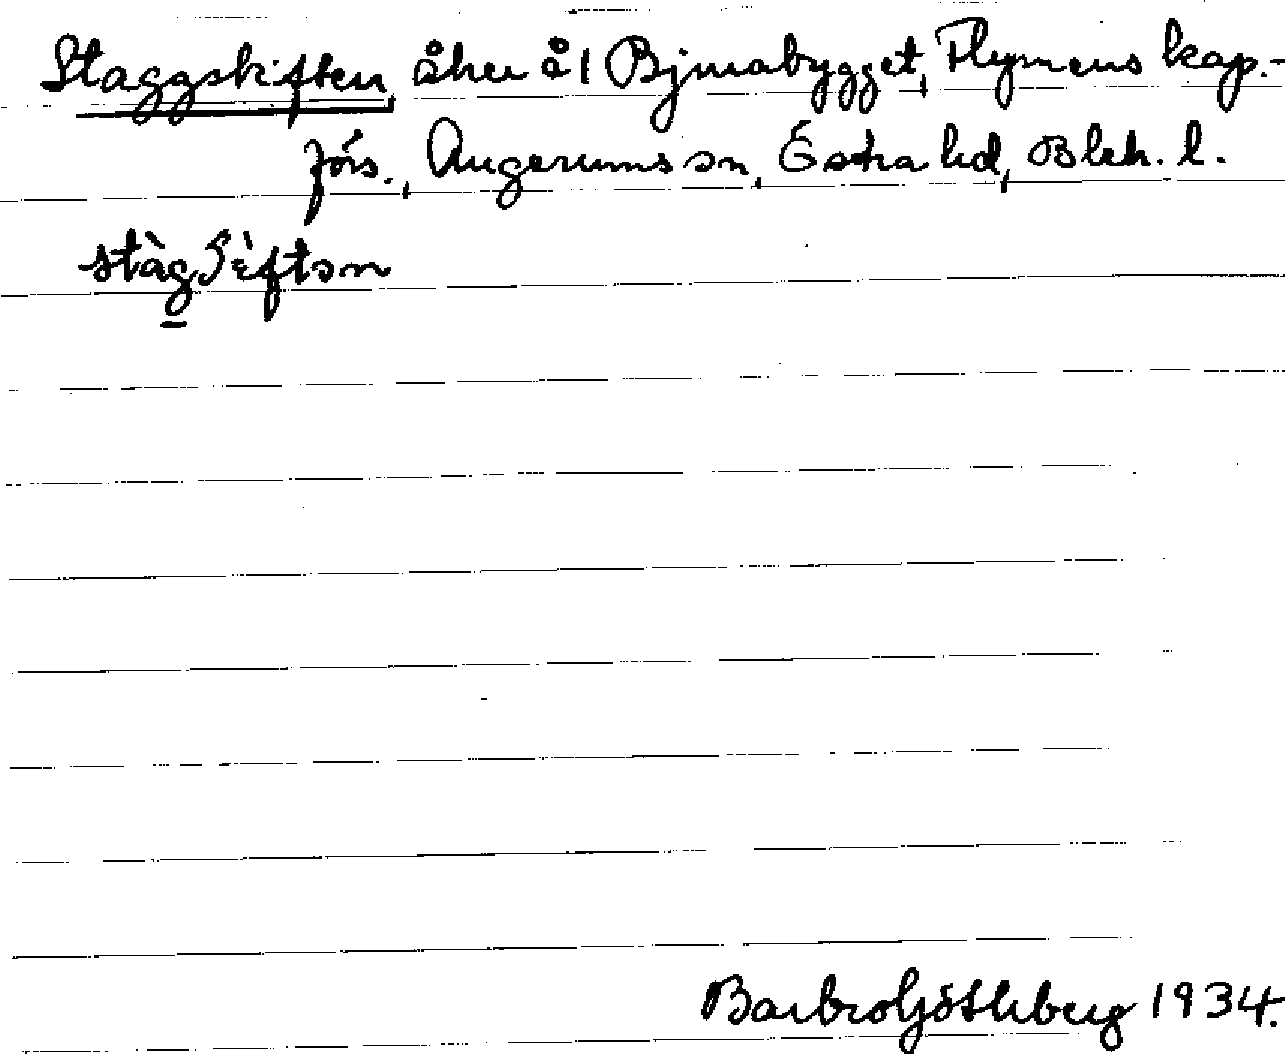 Staggskiften, åker å 1 Bjurabygget, Flymens kap.-
förs., Augerums sn, Östra hd, Blek. l.
stàgʃèftən
Barbro Göthberg 1934.